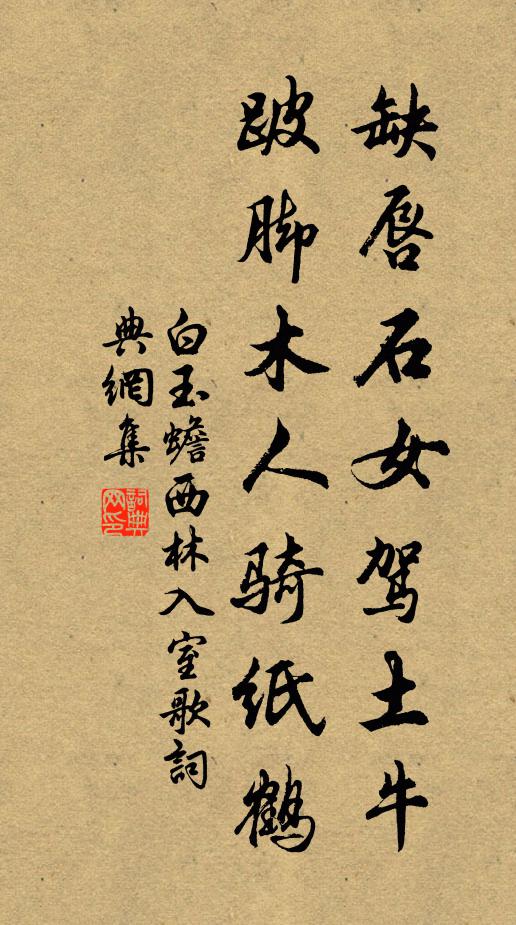 缺唇石女驾土牛
跛脚木人骑纸鹤
白玉蟾西林入室歌詞
典網集
詞典网印